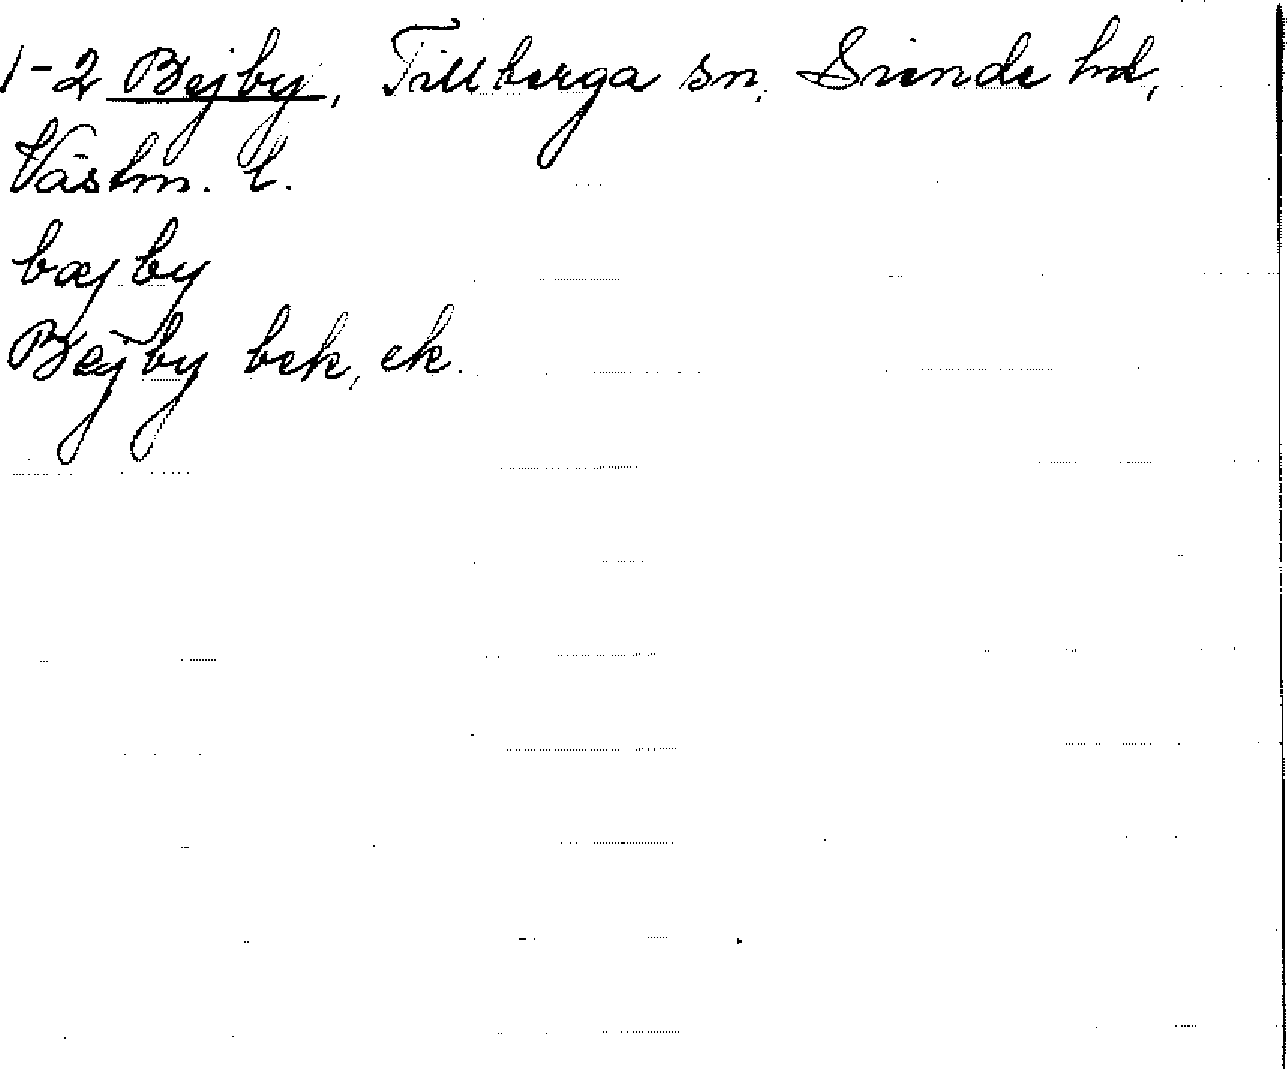 1-2 Bejby, Tillberga sn, Siende hd,
Västm. l.
bæjby
Bejby bek, ek.